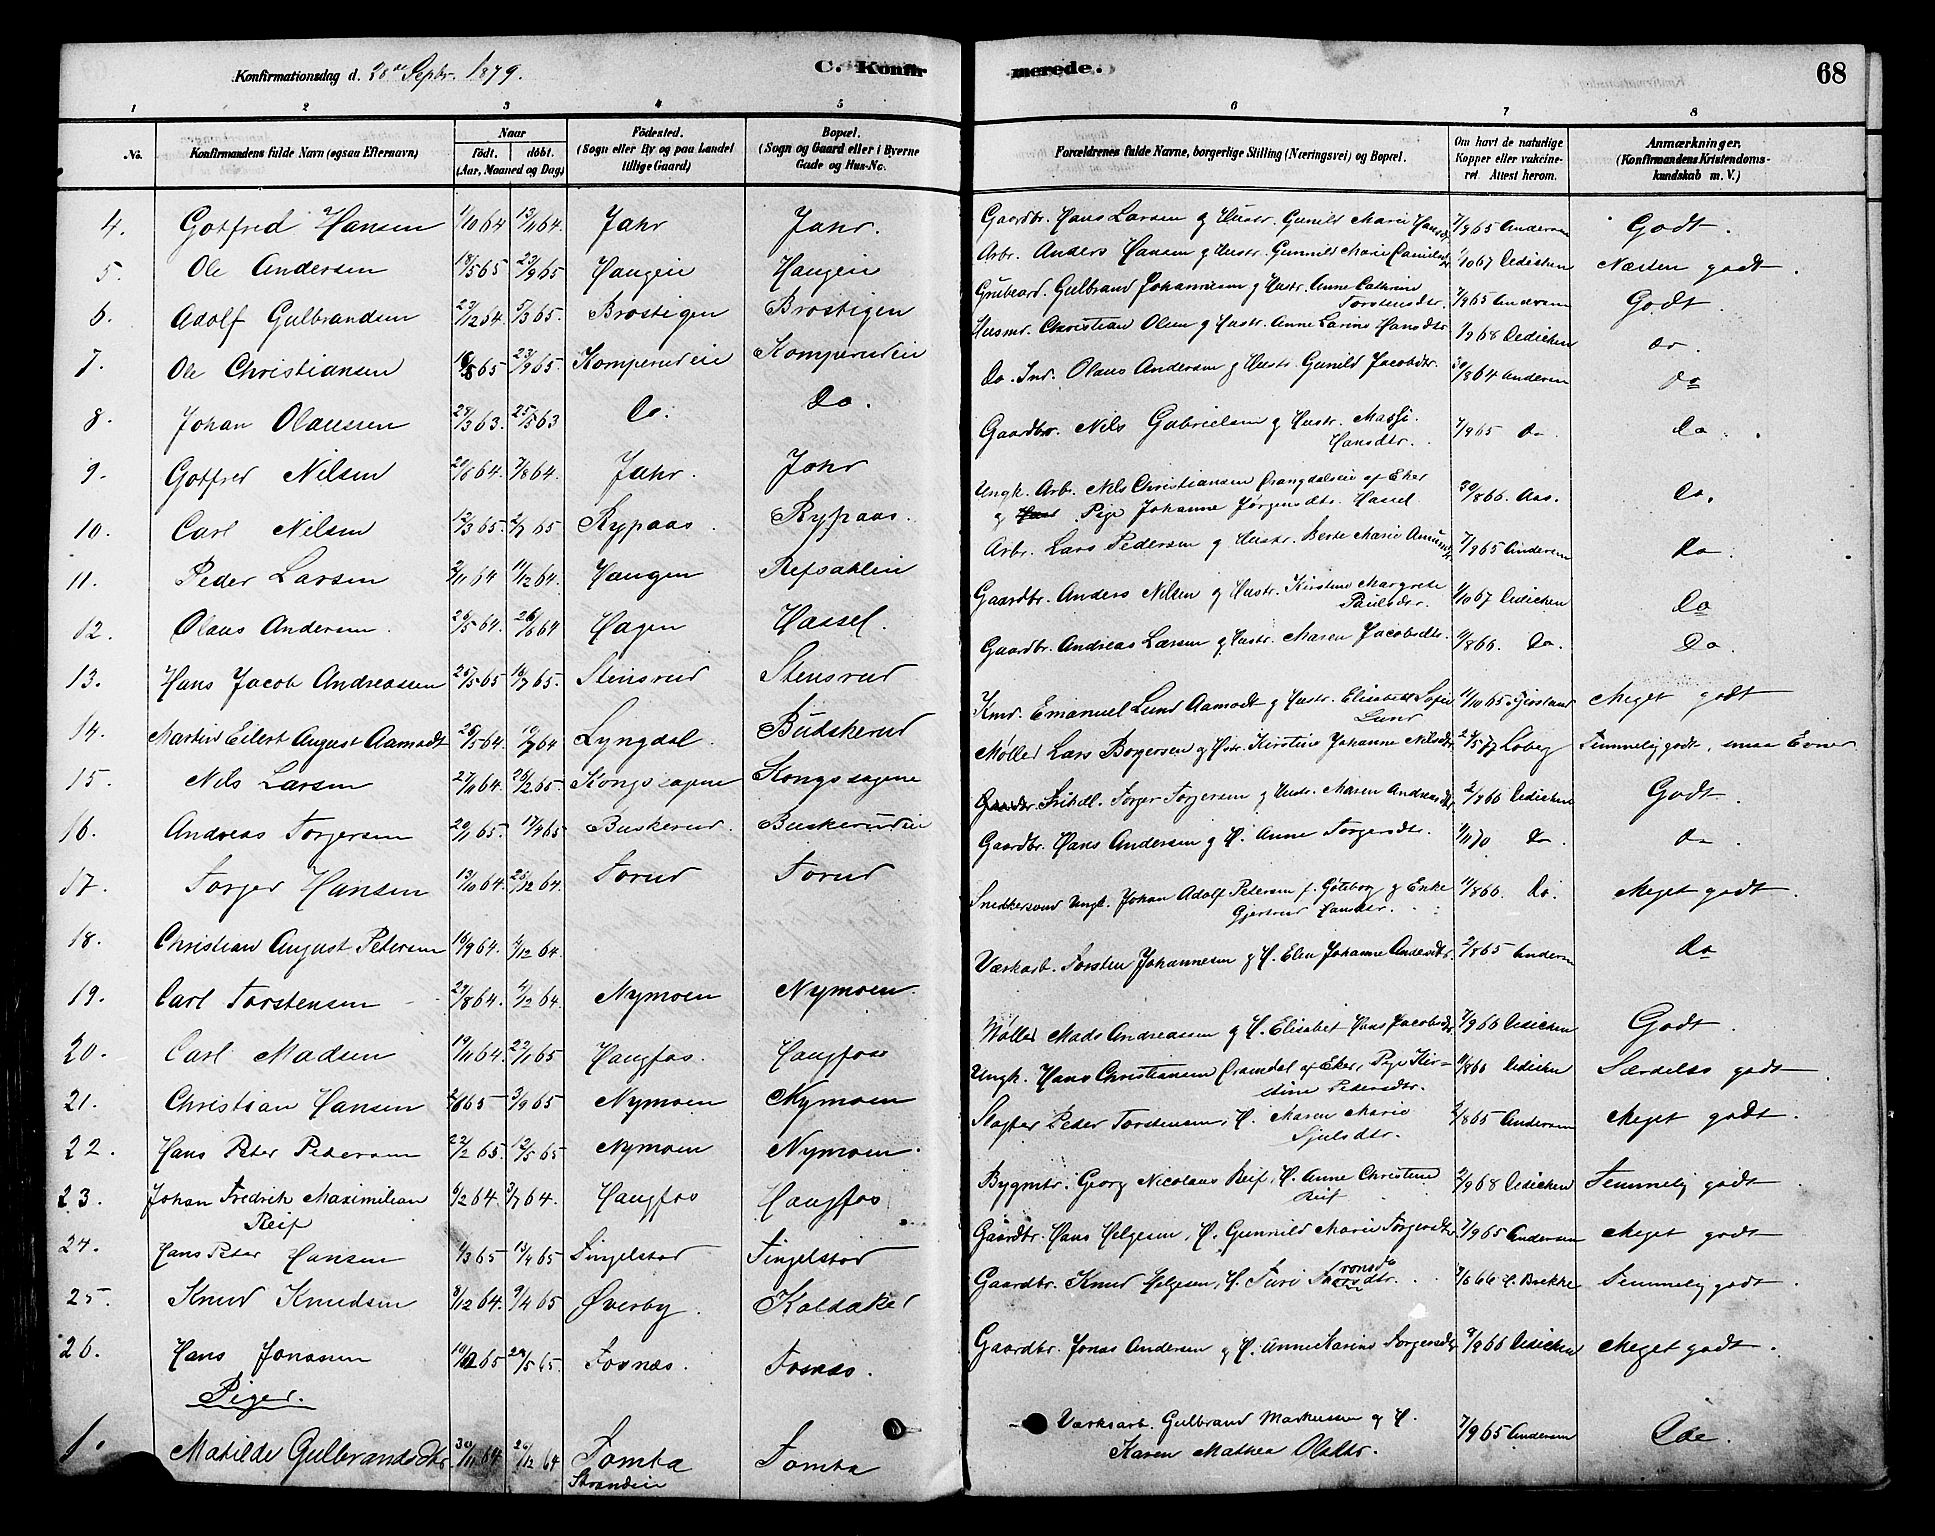 Konfirmationsdag d. 28de Septbr. 1879.
C. Konfirmerede.
68
1 2 3 4 5 6 7 8
No. Konfirmandens fulde Navn (ogsaa Efternavn) Naar født. døbt. (Aar, Maaned og Dag) Fødested. (Sogn eller By og paa Landet tillige Gaard) Bopæl. (Sogn og Gaard eller i Byerne Gade og Hus-No. Forældrenes fulde Navne, borgerlige Stilling (Næringsvei) og Bopæl. Om havt de naturlige Kopper eller vakcineret. Attest herom. Anmærkninger. (Konfirmandens Kristendomskundskab m. V.)
4. Gotfred Hansen 1/10 64 13/11 64. Jahr Jahr. Gaardbr. Hans Larsen og Hustr. Gunild Marie Hansdtr 7/9 65 Andersen Godt.
5. Ole Andersen 18/5 65 23/9 65 Haugeie Haugeie Arbr. Anders Hansen og Hustr. Gunnild Marie 1/10 67 Didichen Næsten godt.
6. Adolf Gulbrandsen 27/12 64 5/3 65. Brostigen Brostigen Grubearb. Gulbrand Johannesen og Hustr. Anne Cathrine Torstensdtr. 7/9 65 Andersen Godt.
7. Ole Christiansen 65 23/9 65. Komperudeie Komperudeie Husmd. Christian Olsen og Hustr. Anne Larine Hansdtr 1/9 68 Didichen do.
8. Johan Olaussen 29/3 63. 25/5 63 Do. Do. Do. Ind. Olaus Andersen og Hustr. Gunild Jacobsdtr. 30/8 64 Andersen do
9. Gotfred Nilsen 20/6 64. 7/8 64. Jahr. Jahr Gaardbr. Nils Gabrielsen og Hustr. Hansdtr. 7/9 65 do do
10. Carl Nilsen 12/3 65. 2/7 65 Rypaas. Rypaas. Ungk. Arb. Nils Christiansen af Eker og Pige Johanne Jørgensdtr. Hassel 30/8 66. Aas. do.
11. Peder Larsen 2/11 64 11/12 64. Haugen Refsahleie Arbr. Lars Pedersen og Hustr. Berte Marie 7/9 65 Andersen do.
12. Olaus Andersen. 26/5 64. 26/6 64 Hagen Hassel. Gaardbr. Anders Nilsen og Hustr. Kirstine Margrete Paulsdtr. 1/10 67 Didichen do
13. Hans Jacob Andreassen 25/5 65 16/7 65. Stensrud Stensrud Gaardbr. Andreas Larsen og Hustr. Maren Jacobsdtr. 11/8 66. Do. Do.
14. Martin Eilert August Aamodt 20/5 64. 10/7 64 Lyngdal. Buskerud Kmd. Emanuel Lund Aamodt og Hustr. Elisabeth Sofie Lund 11/10 65 Meget godt
15. Nils Larsen 27/11 64. 26/2 65. Kongssagene Kongssagene Møller Lars Borgersen og Hstr. Kirstine Johanne Nilsdtr. 24/5 77 Loberg Temmelig godt, smaa Evner
16. Andreas Torgersen 20/1 65. 17/4 65. Buskerud. Buskerudeie Fribdl. Torger Torgersen og Hustr. Maren Andreasdtr 2/8 66 Didichen Godt.
17. Torger Hansen 13/10 64. 26/12 64. Torud Torud Gaardbr. Hans Andersen og H. Anne Torgersdtr. 1/11 70 do. do.
18. Christian August Petersen 18/9 64. 4/12 64. Snedkersvend Ungk. Johan Adolf Petersen f. Gøteborg og Enke Gjertrud Hansdtr. 11/8 66. Do. Meget godt.
19. Carl Torstensen 27/8 64. 4/12 64. Nymoen Nymoen. Værkarb. Torsten Johannesen og H. Elen Johanne Andersdtr. 2/8 65 Andersen do
20. Carl Madsen 19/11 64. 22/1 65. Haugfos. Haugfos Møller Mads Andreassen og H. Elisabet Hans Jacobsdtr 7/9 66 Didichen Godt.
21. Christian Hansen 65 3/9 65 Nymoen Nymoen Ungk. Hans Christiansen af Eker, Pige Kirstine Pedersdtr. 11/8 66 Didichen Særdeles godt.
22. Hans Peter Pedersen 22/2 65. 12/5 65 Nymoen Nymoen. Slagter Peder Torstensen, H. Maren Marie Sjulsdtr. 2/8 65 Andersen Meget godt.
23. Johan Fredrik Maximilian Reif 6/2 64. 3/7 64. Haugfos Haugfos Bygmstr. Georg Nicolaus Reif, H. Anne Christine Reif 2/9 68 Didichen Temmelig godt.
24. Hans Peter Hansen 1/3 65 17/4 65 Tingelstad Tingelstad Gaardbr. Hans Helgesen, H. Gunnild Marie Torgersdtr 7/9 65 Andersen Meget godt
25. Knud Knudsen 8/12 64. 9/4 65 Øverby. Koldaker Gaardbr. Knud Helgesen, H. Turi 7/6 66 C. Brekke Temmelig godt.
26. Hans Jonasen 10/2 65 24/5 65. Fosnæs. Fosnæs. Gaardbr. Jonas Andersen og H. Anne Karine Torgersdtr 9/9 66 Didichen Meget godt.
Piger.
1. Matilde Gulbrandsdtr. 30/11 64 26/12 64 Tomba Strandeie Tomba Værksarb. Gulbrand Markussen og H. Karen Mathea Olsdtr. 7/9 65 Andersen